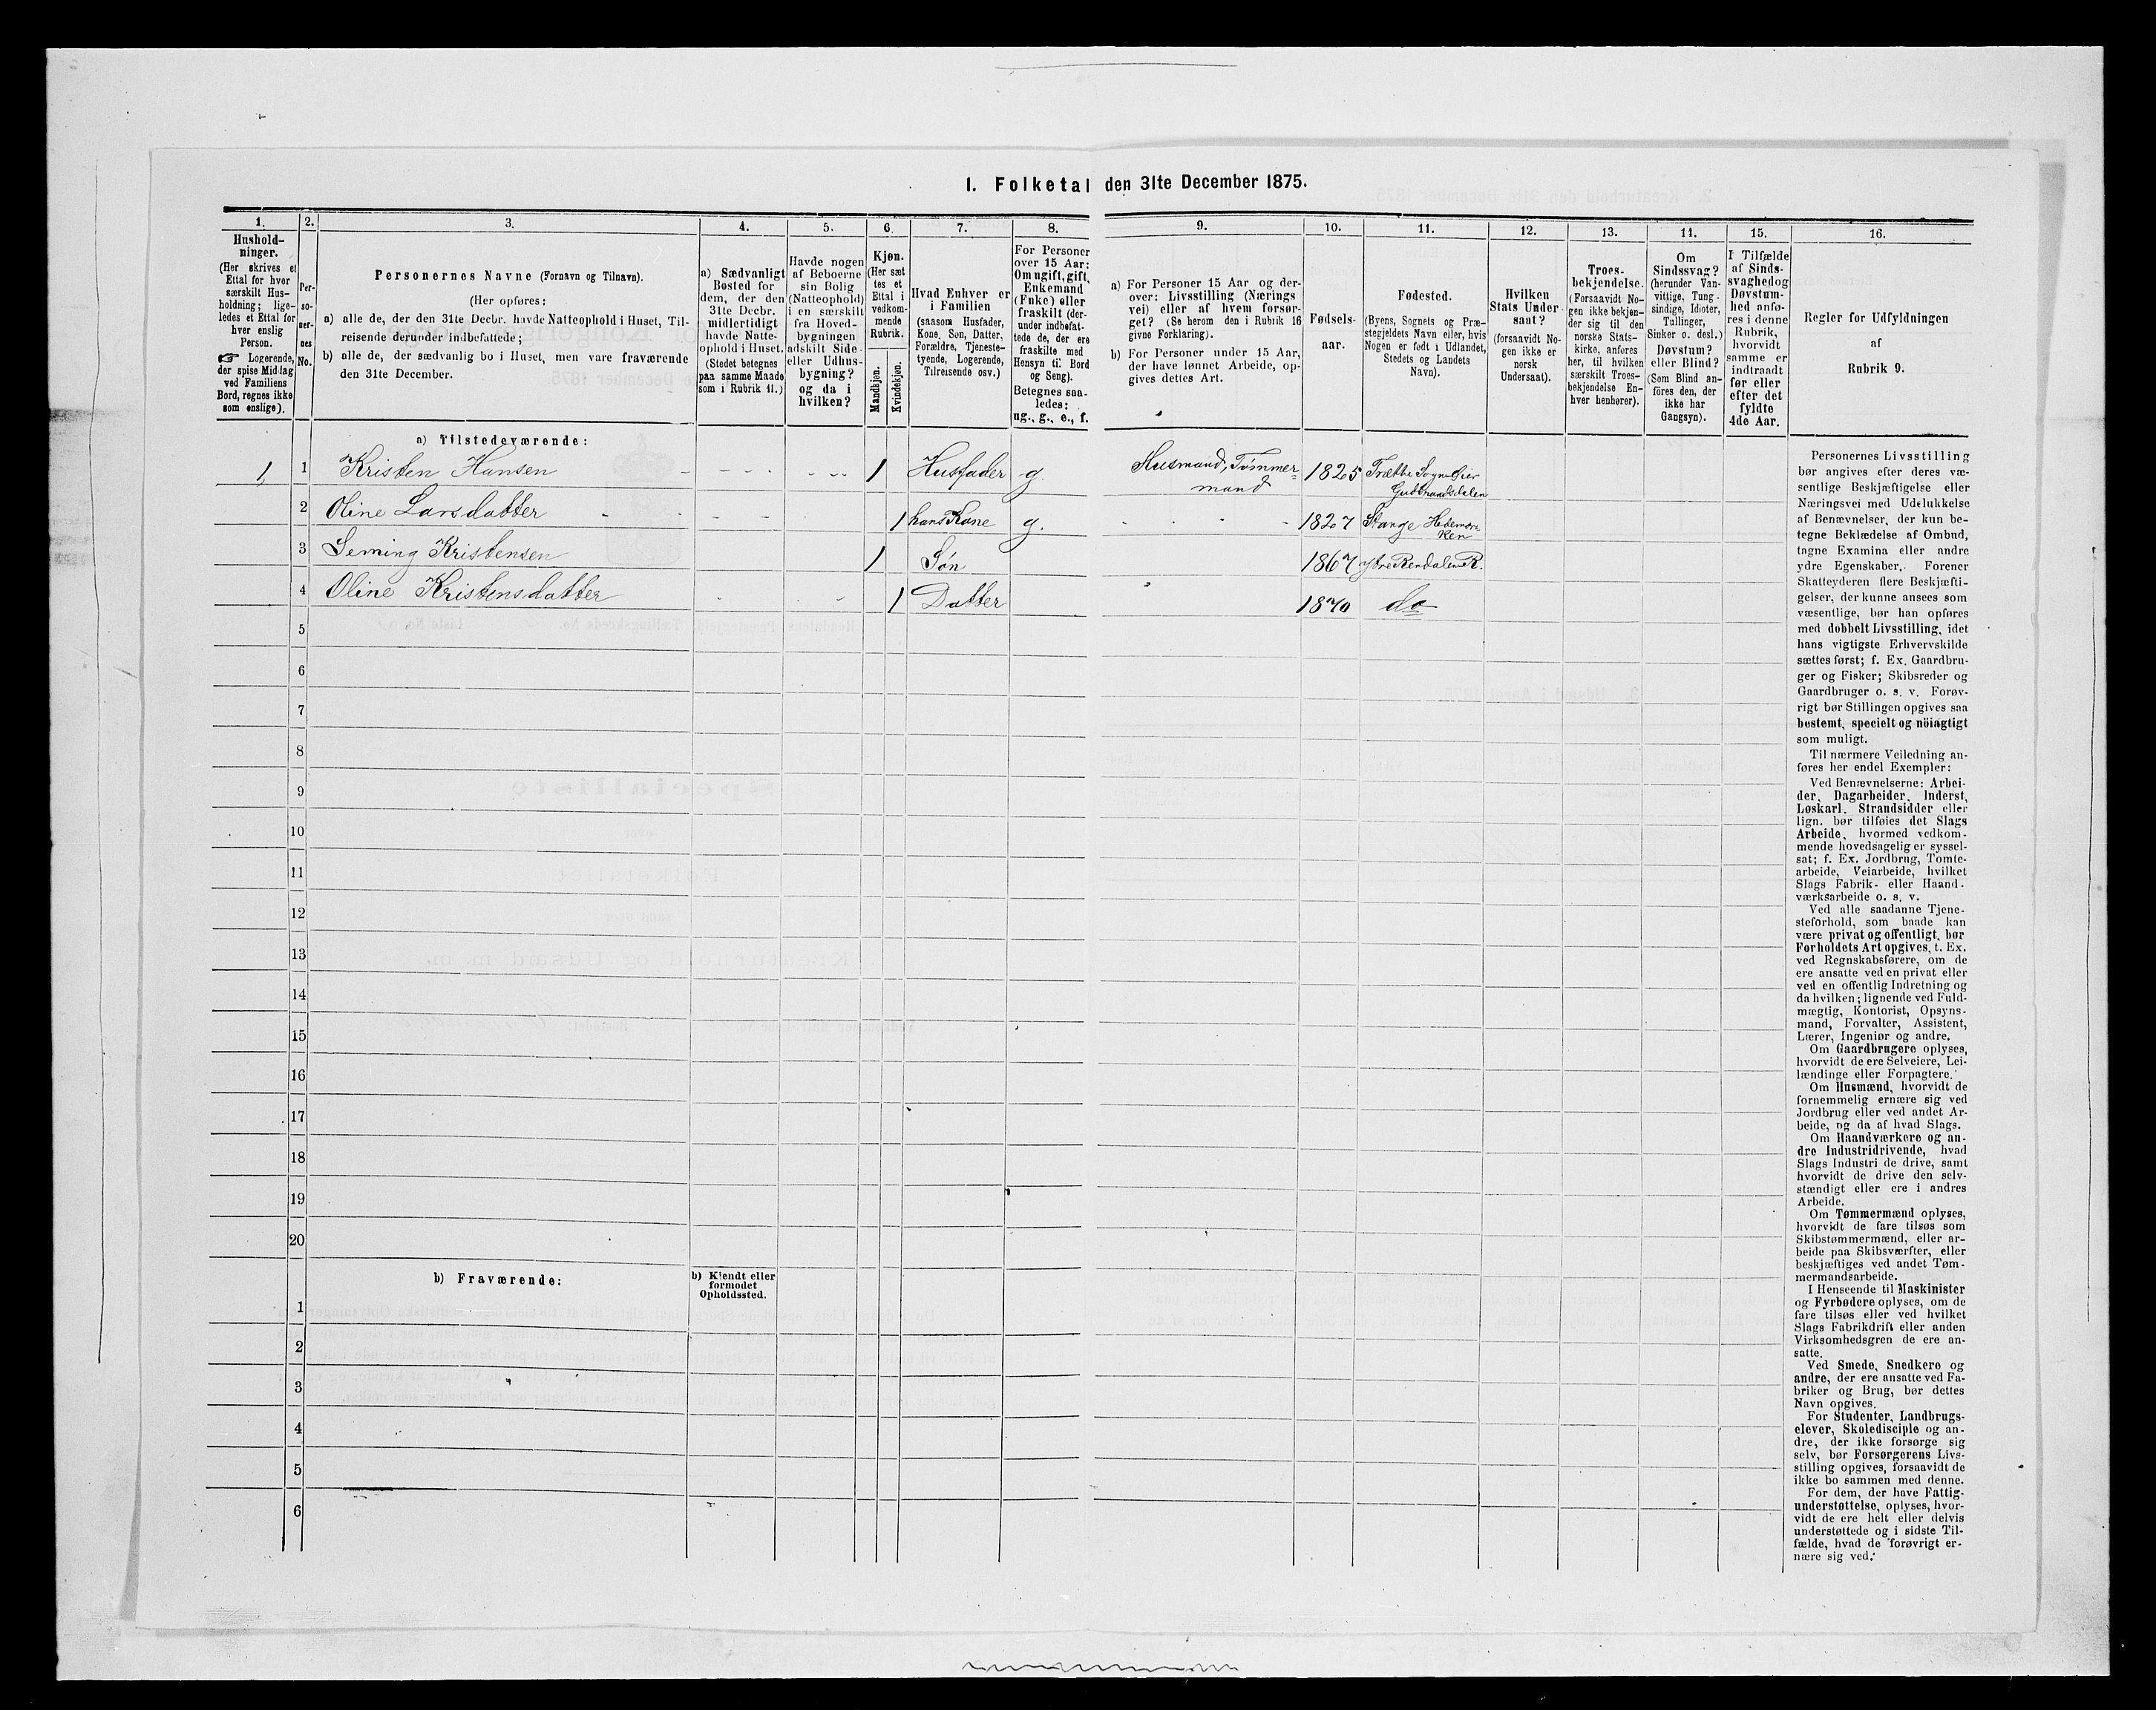 1. Folketal den 31te December 1875.
1.
Hushold-
ninger.
(Her skrives et
Ettal for hver
særskilt Hus-
holdning; lige-
ledes et Ettal for
hver enslig
Person.
☞ Logerende,
der spise Middag
ved Familiens
Bord, regnes ikke
som enslige).
2.
Per-
so-
ner-
nes
No.
3.
Personernes Navne (Fornavn og Tilnavn).
(Her opføres:
a) alle de, der den 31te Decbr. havde Natteophold i Huset, Til-
reisende derunder indbefattede;
b) alle de, der sædvanlig bo i Huset, men vare fraværende
den 31te December.
4.
a) Sædvanligt
Bosted for
dem, der den
31te Decbr.
midlertidigt
havde Natte-
ophold i Huset.
(Stedet betegnes
paa samme Maade
som i Rubrik 11.)
5.
Havde nogen
af Beboerne
sin Bolig
(Natteophold)
i en særskilt
fra Hoved-
bygningen
adskilt Side-
eller Udhus-
bygning?
og da i
hvilken?
6.
Kjøn.
(Her sæt
tes et
Ettal i
vedkom-
mende
Rubrik.
Mandkjøn.
Kvindekjøn.
7.
Hvad Enhver er
i Familien
(saasom Husfader,
Kone, Søn, Datter,
Forældre, Tjeneste-
tyende, Logerende,
Tilreisende osv.)
8.
For Personer
over 15 Aar:
Om ugift, gift,
Enkemand
(Enke) eller
fraskilt (der-
under indbefat-
tede de, der ere
fraskilte med
Hensyn til Bord
og Seng).
Betegnes saa-
ledes:
ug., g., e., f.
9.
a) For Personer 15 Aar og der-
over: Livsstilling (Nærings
vei) eller af hvem forsør-
get? (Se herom den i Rubrik 16
givne Forklaring).
b) For Personer under 15 Aar,
der have lønnet Arbeide, op-
gives dettes Art.
10.
Fødsels-
aar.
11.
Fødested.
(Byens, Sognets og Præ-
stegjeldets Navn eller, hvis
Nogen er født i Udlandet,
Stedets og Landets
Navn).
12.
Hvilken
Stats Under
saat?
(forsaavidt No-
gen ikke er
norsk
Undersaat).
13.
Troes-
bekjendelse.
(Forsaavidt No-
gen ikke bekjen-
der sig til den
norske Stats-
kirke, anføres
her, til hvilken
særskilt Troes-
bekjendelse En-
hver henhører).
14.
Om
Sindssvag?
(herunder Van-
vittige, Tung-
sindige, Idioter,
Tullinger,
Sinker o. desl.)
Døvstum?
eller Blind?
(Som Blind an-
föres den, der
ikke har
Gangsyn).
15.
I Tilfælde
af Sinds-
svaghed og
Døvstum-
hed anfø-
res i denne
Rubrik,
hvorvidt
samme er
indtraadt
før eller
efter det
fyldte
4de Aar.
16.
Regler for Udfyldningen
af
Rubrik 9.
a) Tilstedeværende:
1 1 Kristen Hansen 1 Husfader g. Husmand, Tømmer=
mand 1825 Frætbe Sogn Øier
Gudbrandsdalen
2 Oline Larsdatter 1 hans Kone g. 1827 Stange Hedemar
ken
3 Leming Kristensen 1 Søn 1867 Ytre Rendalen R.
4 Oline Kristensdatter 1 Datter 1870 do
5
6
7
8
9
10
11
12
13
14
15
16
17
18
19
20
b) Fraværende:
b) Kjendt eller
formodet
Opholdssted.
1
2
3
4
5
6
Personernes Livsstilling
bør angives efter deres væ-
sentlige Beskjæftigelse eller
Næringsvei med Udelukkelse
af Benævnelser, der kun be-
tegne Beklædelse af Ombud,
tagne Examina eller andre
ydre Egenskaber. Forener
Skatteyderen flere Beskjæfti-
gelser, der kunne ansees som
væsentlige, bør han opføres
med dobbelt Livsstilling, idet
hans vigtigste Erhvervskilde
sættes først; f. Ex. Gaardbru-
ger og Fisker; Skibsreder og
Gaardbruger o. s. v. Forøv-
rigt bør Stillingen opgives saa
bestemt, specielt og nöiagtigt
som muligt.
Til nærmere Veiledning an-
føres her endel Exempler:
Ved Benævnelserne: Arbei-
der, Dagarbeider, Inderst,
Løskarl, Strandsidder eller
lign. bør tilføies det Slags
Arbeide, hvormed vedkom-
mende hovedsagelig er syssel-
sat; f. Ex. Jordbrug, Tomte-
arbeide, Veiarbeide, hvilket
Slags Fabrik- eller Haand-
værksarbeide o. s. v.
Ved alle saadanne Tjene-
steforhold, som baade kan
være privat og offentligt, bør
Forholdets Art opgives, t. Ex.
ved Regnskabsførere, om de
ere ansatte ved en privat eller
ved en offentlig Indretning og
da hvilken; lignende ved Fuld-
mægtig, Kontorist, Opsyns-
mand, Forvalter, Assistent,
Lærer, Ingeniør og andre.
Om Gaardbrugere oplyses,
hvorvidt de ere Selveiere, Lei-
lændinge eller Forpagtere.
Om Husmænd, hvorvidt de
fornemmelig ernære sig ved
Jordbrug eller ved andet Ar-
beide, og da af hvad Slags.
Om Haandværkere og an-
dre Industridrivende, hvad
Slags Industri de drive, samt
hvorvidt de drive den selv-
stændigt eller ere i andres
Arbeide.
Om Tømmermænd oplyses,
hvorvidt de fare tilsøs som
Skibstømmermænd, eller ar-
beide paa Skibsværfter, eller
beskjæftiges ved andet Tøm-
mermandsarbeide.
I Henseende til Maskinister
og Fyrbødere oplyses, om de
fare tilsøs eller ved hvilket
Slags Fabrikdrift eller anden
Virksomhedsgren de ere an-
satte.
Ved Smede, Snedkere og
andre, der ere ansatte ved Fa-
briker og Brug, bør dettes
Navn opgives.
For Studenter, Landbrugs-
elever, Skoledisciple og an-
dre, der ikke forsørge sig
selv, bør Forsørgerens Livs-
stilling opgives, forsaavidt de
ikke bo sammen med denne.
For dem, der have Fattig-
understøttelse, oplyses, hvor-
vidt de ere helt eller delvis
understøttede og i sidste Til-
fælde, hvad de forøvrigt er-
nære sig ved.